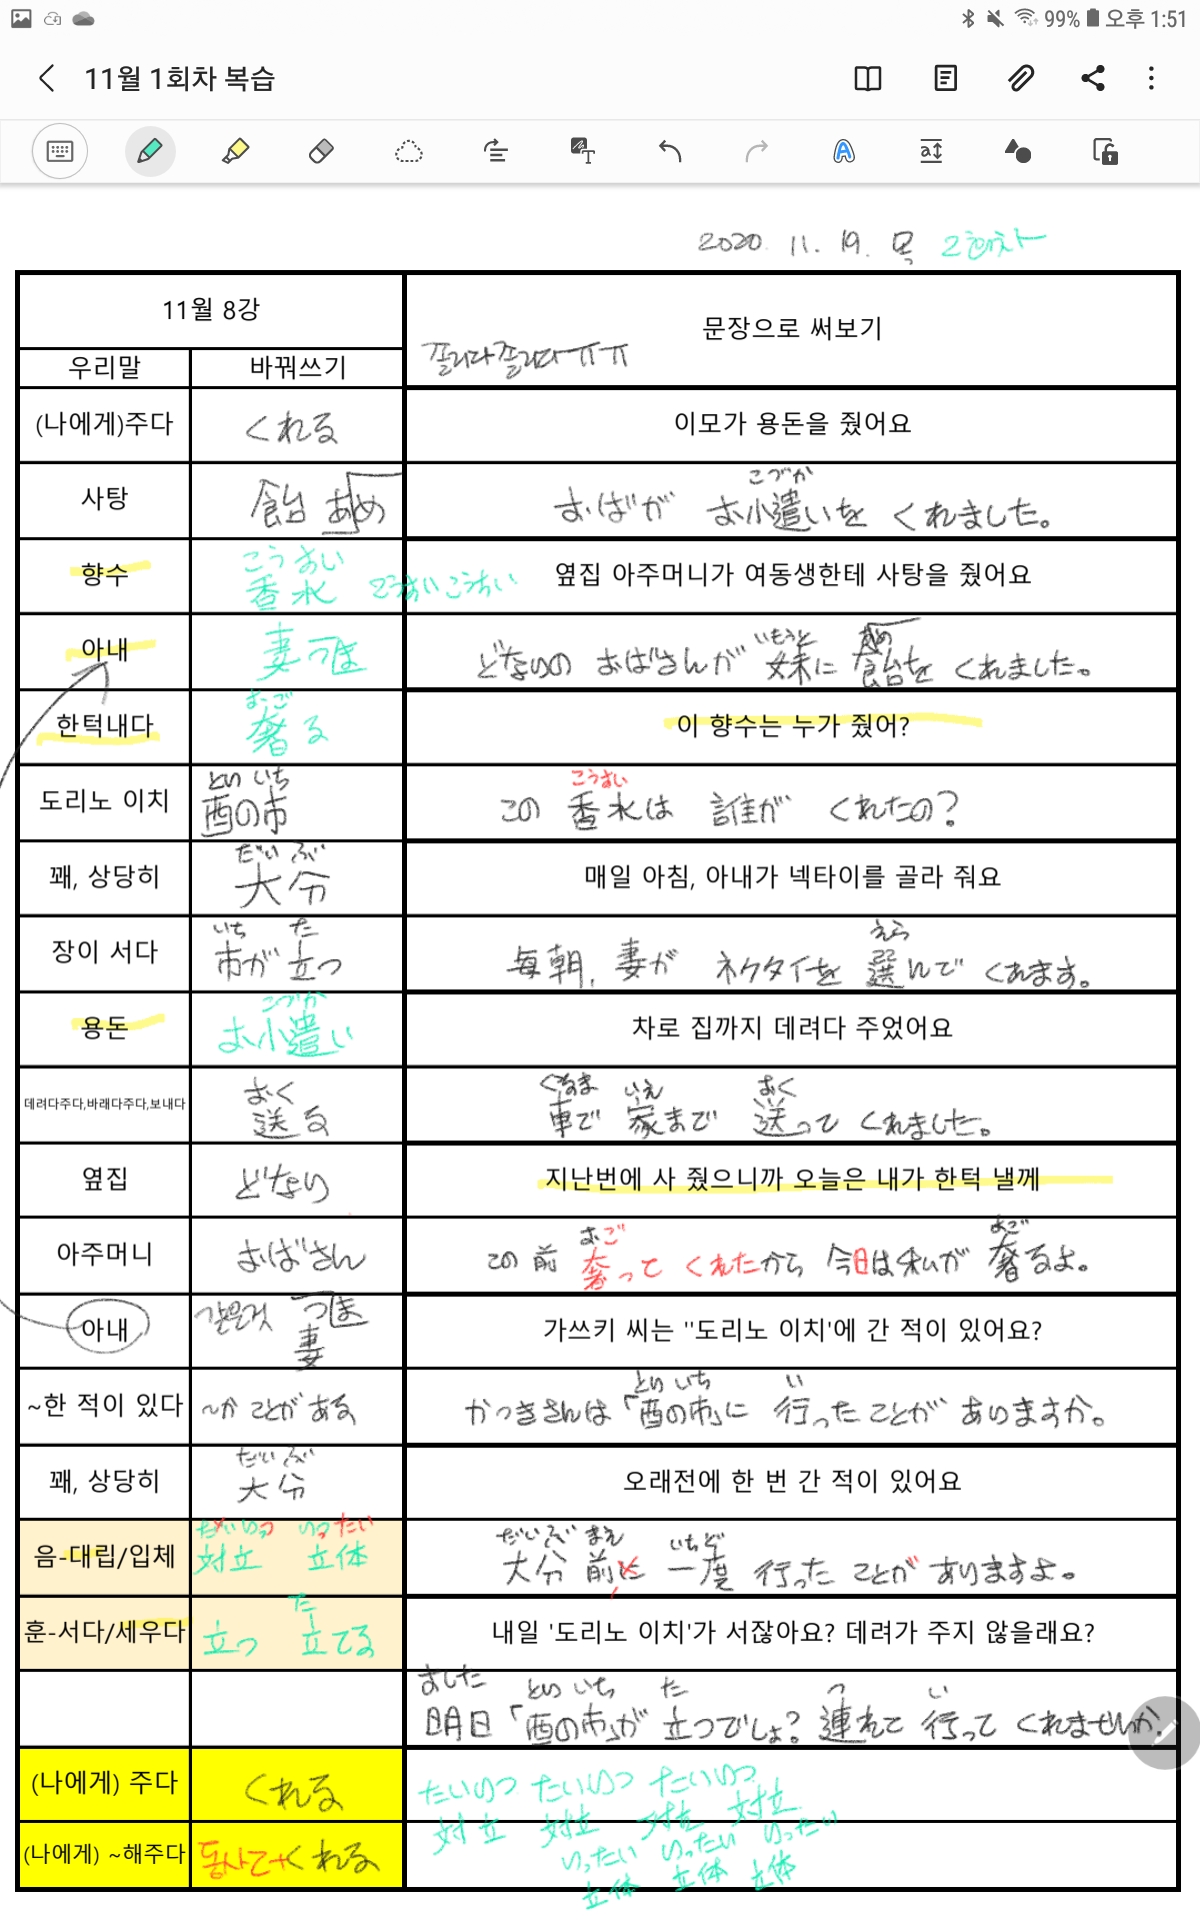 99% 오후 1:51
11월 1회차 복습
2020. 11. 19. 목 2회차
11월 8강
문장으로 써보기
졸리다졸리다ㅠㅠ
우리말 바꿔쓰기
(나에게)주다 くれる 이모가 용돈을 줬어요
こづか
사탕 飴 あめ おばが お小遣いを くれました。
こうすい
향수 香水 こうすい こうすい 옆집 아주머니가 여동생한테 사탕을 줬어요
いもうと あめ
아내 妻 つま どなりの おばさんが 妹に 飴を くれました。
おご
한턱내다 奢る 이 향수는 누가 줬어?
とり いち こうすい
도리노 이치 酉の市 この 香水は 誰が くれたの?
だい ぶ
꽤, 상당히 大分 매일 아침, 아내가 넥타이를 골라 줘요
いち た えら
장이 서다 市が 立つ 毎朝, 妻が ネクタイを 選んで くれます。
こづか
용돈 お小遣い 차로 집까지 데려다 주었어요
おく くるま いえ おく
데려다주다,바래다주다,보내다 送る 車で 家まで 送って くれました。
옆집 どなり 지난번에 사 줬으니까 오늘은 내가 한턱 낼께
おご おご
아주머니 おばさん この 前 奢って くれたから 今日は 私が 奢るよ。
아내 같은것 つま 妻 가쓰키 씨는 "도리노 이치'에 간 적이 있어요?
とり いち い
~한 적이 있다 ~か ことが ある かつきさんは「酉の市」に 行ったことが ありますか。
だい ぶ
꽤, 상당히 大分 오래전에 한 번 간 적이 있어요
たいりつ りったい だい ぶ まえ いちど
음-대립/입체 対立 立体 大分 前に 一度 行った ことが ありますよ。
た
훈-서다/세우다 立つ 立てる 내일 '도리노 이치'가 서잖아요? 데려가 주지 않을래요?
あした とり いち た つ い
明日「酉の市」が 立つでしょ? 連れて 行って くれませんか?
(나에게) 주다 くれる たいりつ たいりつ たいりつ
対立 対立 対立 対立
(나에게) ~해주다 동사て+くれる りったい りったい りったい
立体 立体 立体